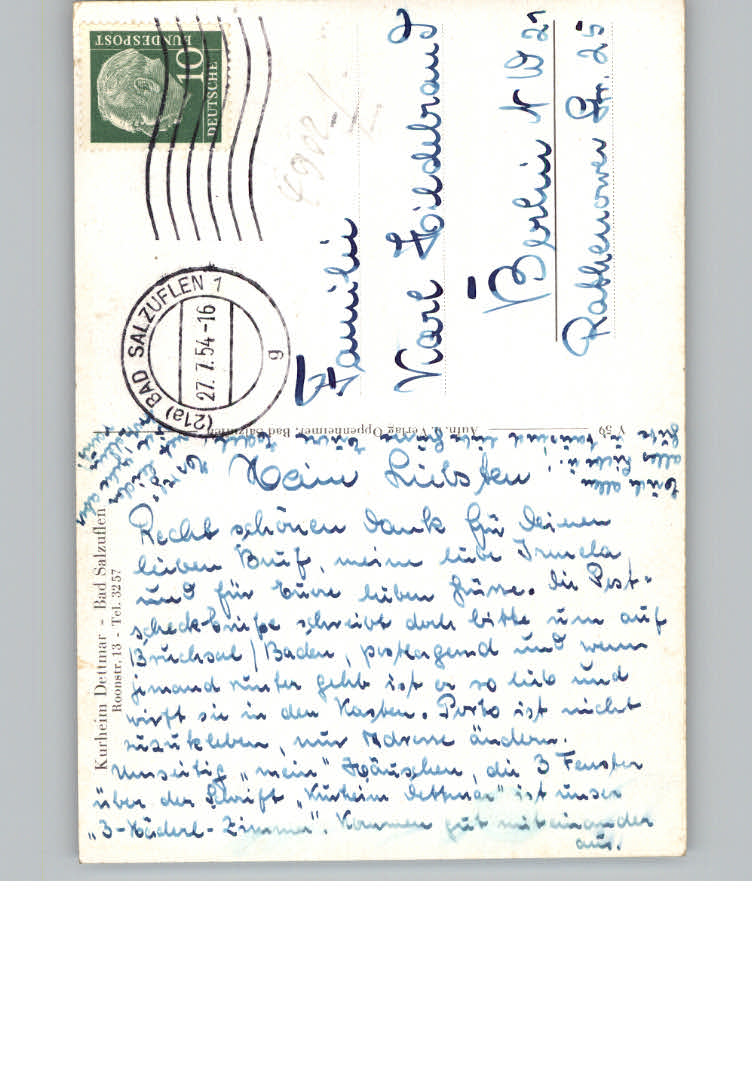 Kurheim Dettmar - Bad Salzuflen
Roonstr. 13 - Tel. 3257
Mein Liebsten!
Recht schönen Dank für Deinen
lieben Brief, meine liebe Irmela,
und für Eure lieben Grüsse. Die Post-
scheck-briefe schreibt doch bitte um auf
Bruchsal / Baden, postlagernd und wenn
jemand runter geht ist er so lieb und
wirft sie in den Kasten. Porto ist nicht
zuzukleben, nur Adresse ändern.
Umseitig "mein" Häuschen, die 3 Fenster
über der Schrift "Kurheim Dettmar" ist unser
"3-Mäderl-Zimmer". Kommen gut miteinander
aus.
Euch allen
alles Liebe u.
Gute u. tausend
leider
Aufn. u. Verlag Oppenheimer, Bad Salzuflen
Y 59
DEUTSCHE
BUNDESPOST
10
(21a) BAD SALZUFLEN 1
27.7.54-16
g
Familie
Karl Hildebrand
Berlin NW 21
Rathenower Str. 25